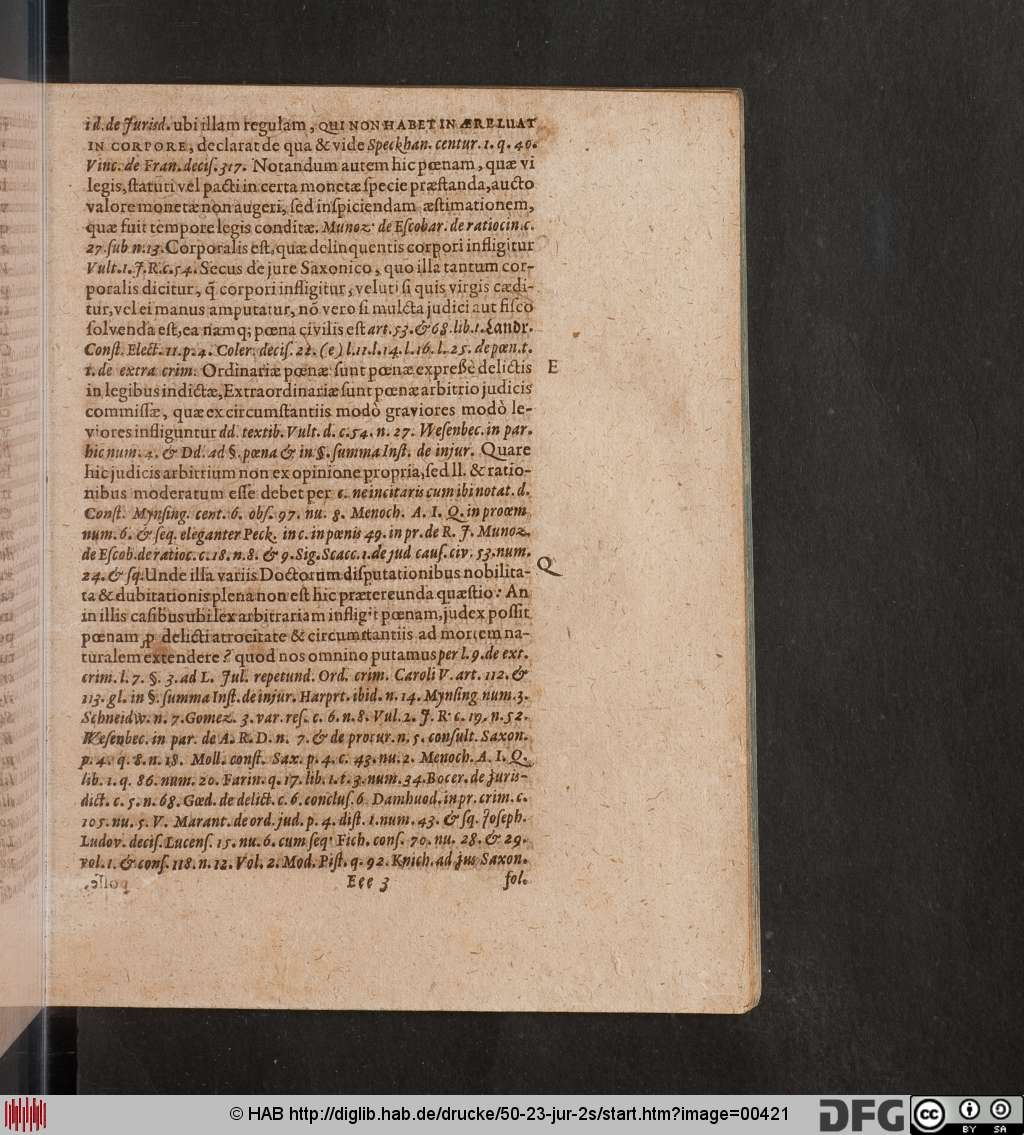 id. de Jurisd. ubi illam regulam, QUI NON HABET IN ÆRE LUAT
IN CORPORE, declarat de qua & vide Speckhan. centur. 1. q. 40.
Vinc. de Fran. decis. 317. Notandum autem hic pœnam, quæ vi
legis, statuti vel pacti in certa monetæ specie præstanda, aucto
valore monetæ non augeri, sed inspiciendam æstimationem,
quæ fuit tempore legis conditæ. Munoz. de Escobar. de ratiocin. c.
27. sub n. 13. Corporalis est, quæ delinquentis corpori infligitur
Vult. 1. J. R. c. 54. Secus de jure Saxonico, quo illa tantum cor-
poralis dicitur, q̃ corpori infligitur, veluti si quis virgis cædi-
tur, vel ei manus amputatur, nõ vero si mulcta judici aut fisco
solvenda est, ea namq; pœna civilis est art. 53. & 68. lib. 1. Landr.
Const. Elect. 11. p. 4. Coler. decis. 22. (e) l. 11. l. 14. l. 16. l. 25. de pœn. t.
1. de extra crim. Ordinariæ pœnæ sunt pœnæ expreßè delictis
in legibus indictæ, Extraordinariæ sunt pœnæ arbitrio judicis
commissæ, quæ ex circumstantiis modò graviores modò le-
viores infliguntur dd. textib. Vult. d. c. 54. n. 27. Wesenbec. in par.
hic num. 4. & Dd. ad §. pœna & in §. summa Inst. de injur. Quare
hic judicis arbitrium non ex opinione propria, sed ll. & ratio-
nibus moderatum esse debet per c. ne incitaris cum ibi notat. d.
Const. Mynsing. cent. 6. obs. 97. nu. 8. Menoch. A. I. Q. in proœm
num. 6. & seq. eleganter Peck. in c. in pœnis 49. in pr. de R. J. Munoz.
de Escob. de ratioc. c. 18. n. 8. & 9. Sig. Scacc. 1. de jud caus. civ. 53. num.
24. & sq. Unde illa variis Doctorum disputationibus nobilita-
ta & dubitationis plena non est hic prætereunda quæstio: An
in illis casibus ubi lex arbitrariam infligit pœnam, judex possit
pœnam ꝓ delicti atrocitate & circumstantiis ad mortem na-
turalem extendere? quod nos omnino putamus per l. 9. de ext.
crim. l. 7. §. 3. ad L. Jul. repetund. Ord. crim. Caroli V. art. 112. &
113. gl. in §. summa Inst. de injur. Harprt. ibid. n. 14. Mynsing num. 3.
Schneidw. n. 7. Gomez. 3. var. res. c. 6. n. 8. Vul. 2. J. R. c. 19. n. 52.
Wesenbec. in par. de A. R. D. n. 7. & de procur. n. 5. consult. Saxon.
p. 4. q. 8. n. 18. Moll. const. Sax. p. 4. c. 43. nu. 2. Menoch. A. I. Q.
lib. 1. q. 86. num. 20. Farin. q. 17. lib. 1. t. 3. num. 34. Bocer. de juris-
dict. c. 5. n. 68. Gœd. de delict. c. 6. conclus. 6. Damhuod. in pr. crim. c.
105. nu. 5. V. Marant. de ord. jud. p. 4. dist. 1. num. 43. & sq. Joseph.
Ludov. decis. Lucens. 15. nu. 6. cum seq. Fich. cons. 70. nu. 28. & 29.
vol. 1. & cons. 118. n. 12. Vol. 2. Mod. Pist. q. 92. Knich. ad jus Saxon.
Eee 3 fol.
E
Q
© HAB http://diglib.hab.de/drucke/50-23-jur-2s/start.htm?image=00421
DFG
cc BY SA